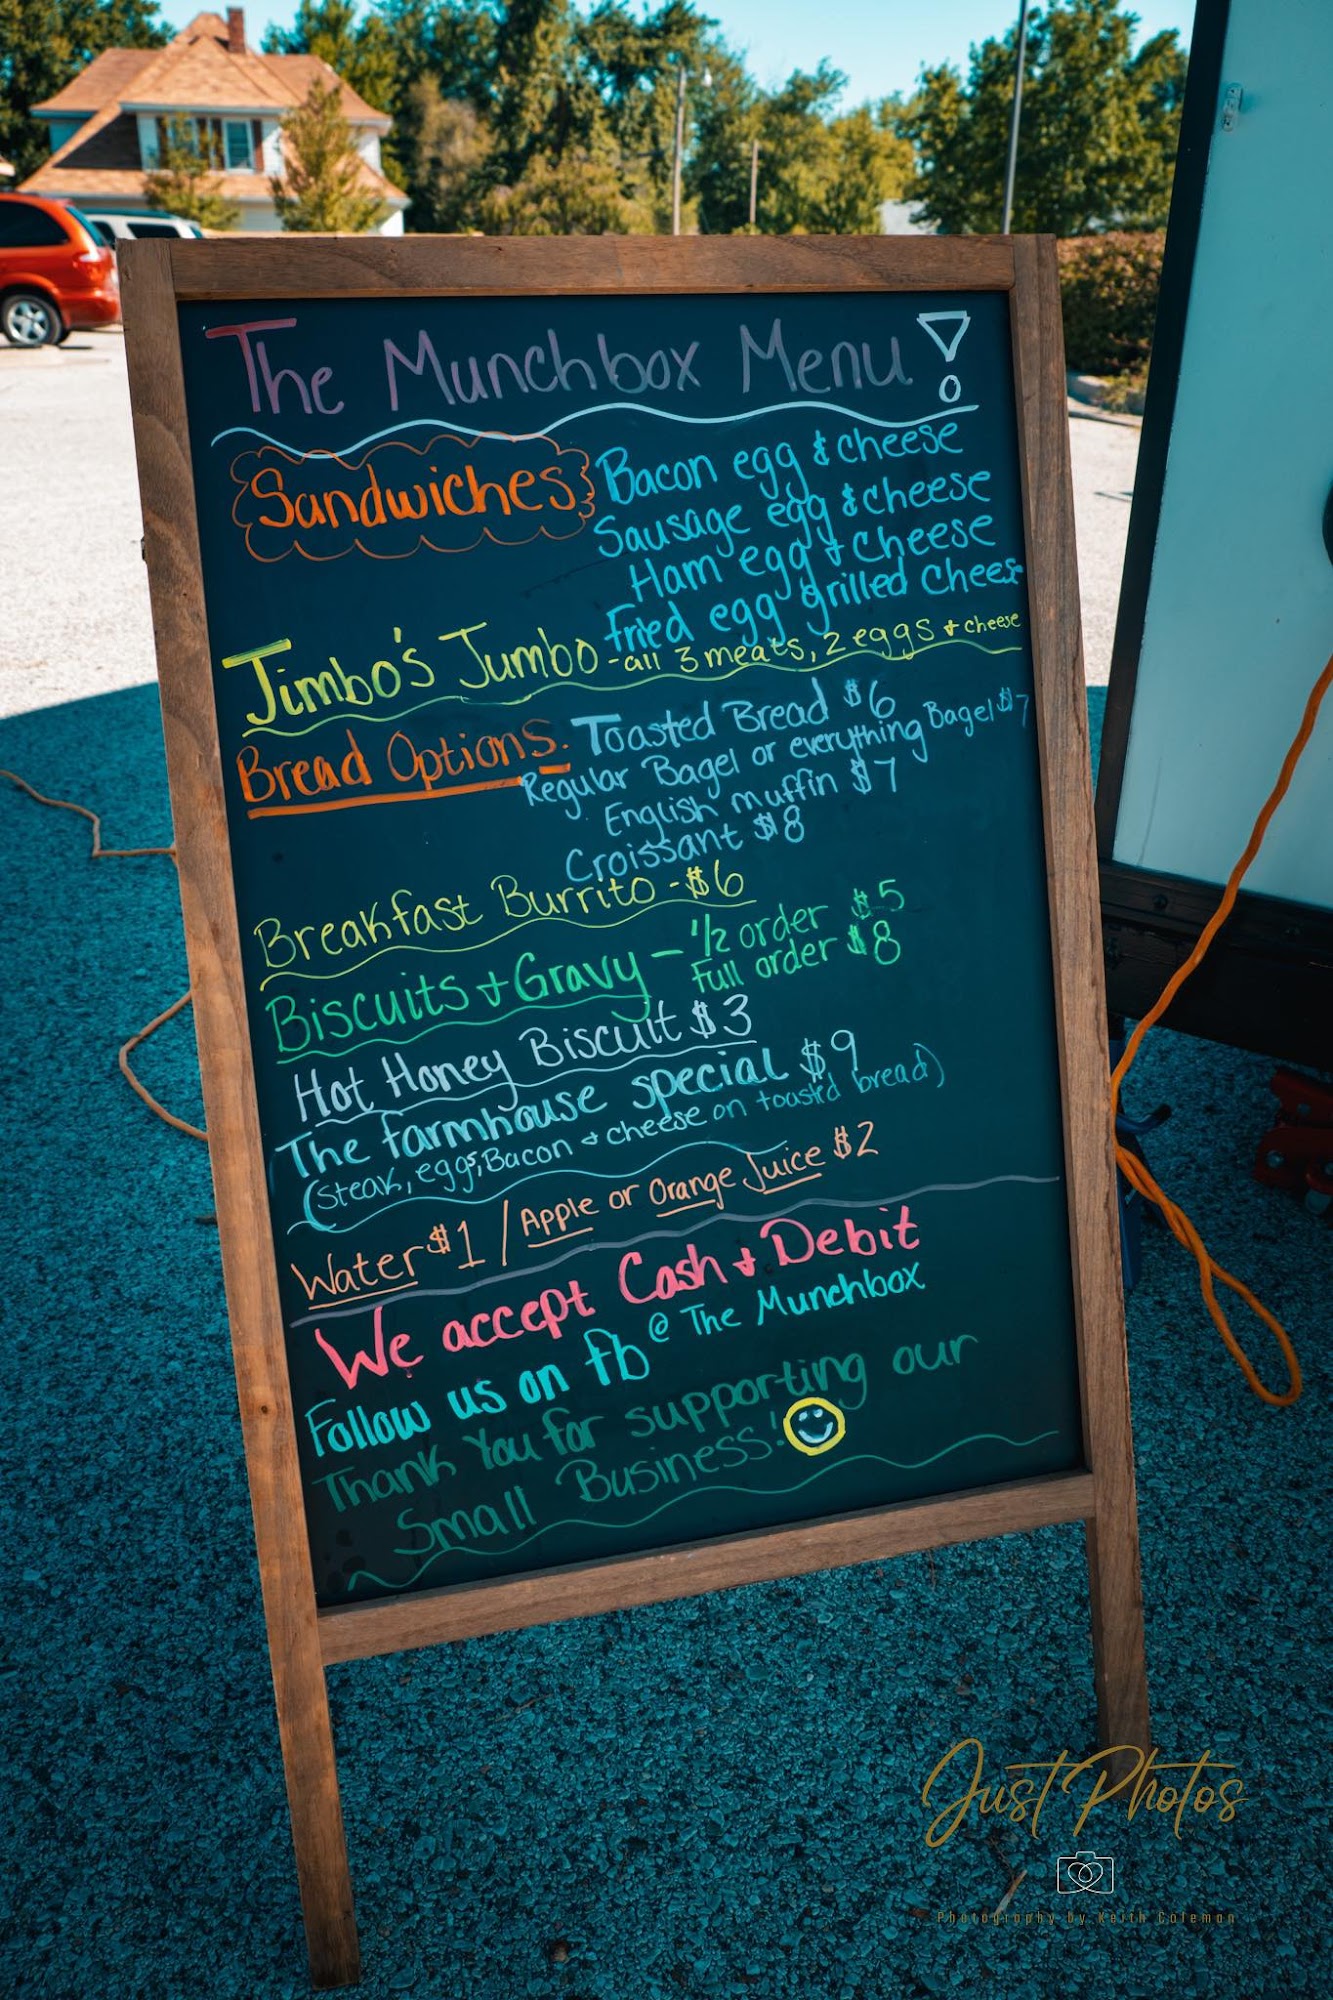 The Munchbox Menu!
Sandwiches
Bacon egg & cheese
Sausage egg & cheese
Ham egg & cheese
fried egg grilled cheese
Jimbo's Jumbo - all 3 meats, 2 eggs & cheese
Bread Options:
Toasted Bread $6
Regular Bagel or everything Bagel $7
English muffin $7
Croissant $8
Breakfast Burrito - $6
Biscuits & Gravy - 1/2 order $5
Full order $8
Hot Honey Biscuit $3
The farmhouse special $9
(steak, eggs, Bacon & cheese on toasted bread)
Water $1 / Apple or Orange Juice $2
We accept Cash & Debit
Follow us on fb @ The Munchbox
Thank You for supporting our
Small Business!
Just Photos
Photography by Keith Coleman